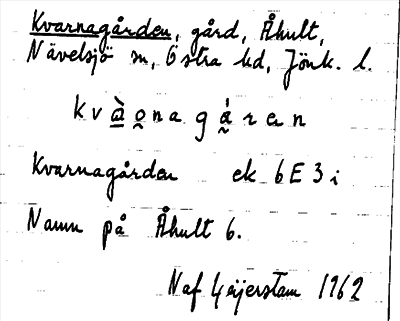 Kvarnagården, gård, Åhult,
Nävelsjö sn, Östra hd, Jönk. l.
kvàọnagáren
Kvarnagården ek 6E3i
Namn på Åhult 6.
Naf Geijerstam 1962